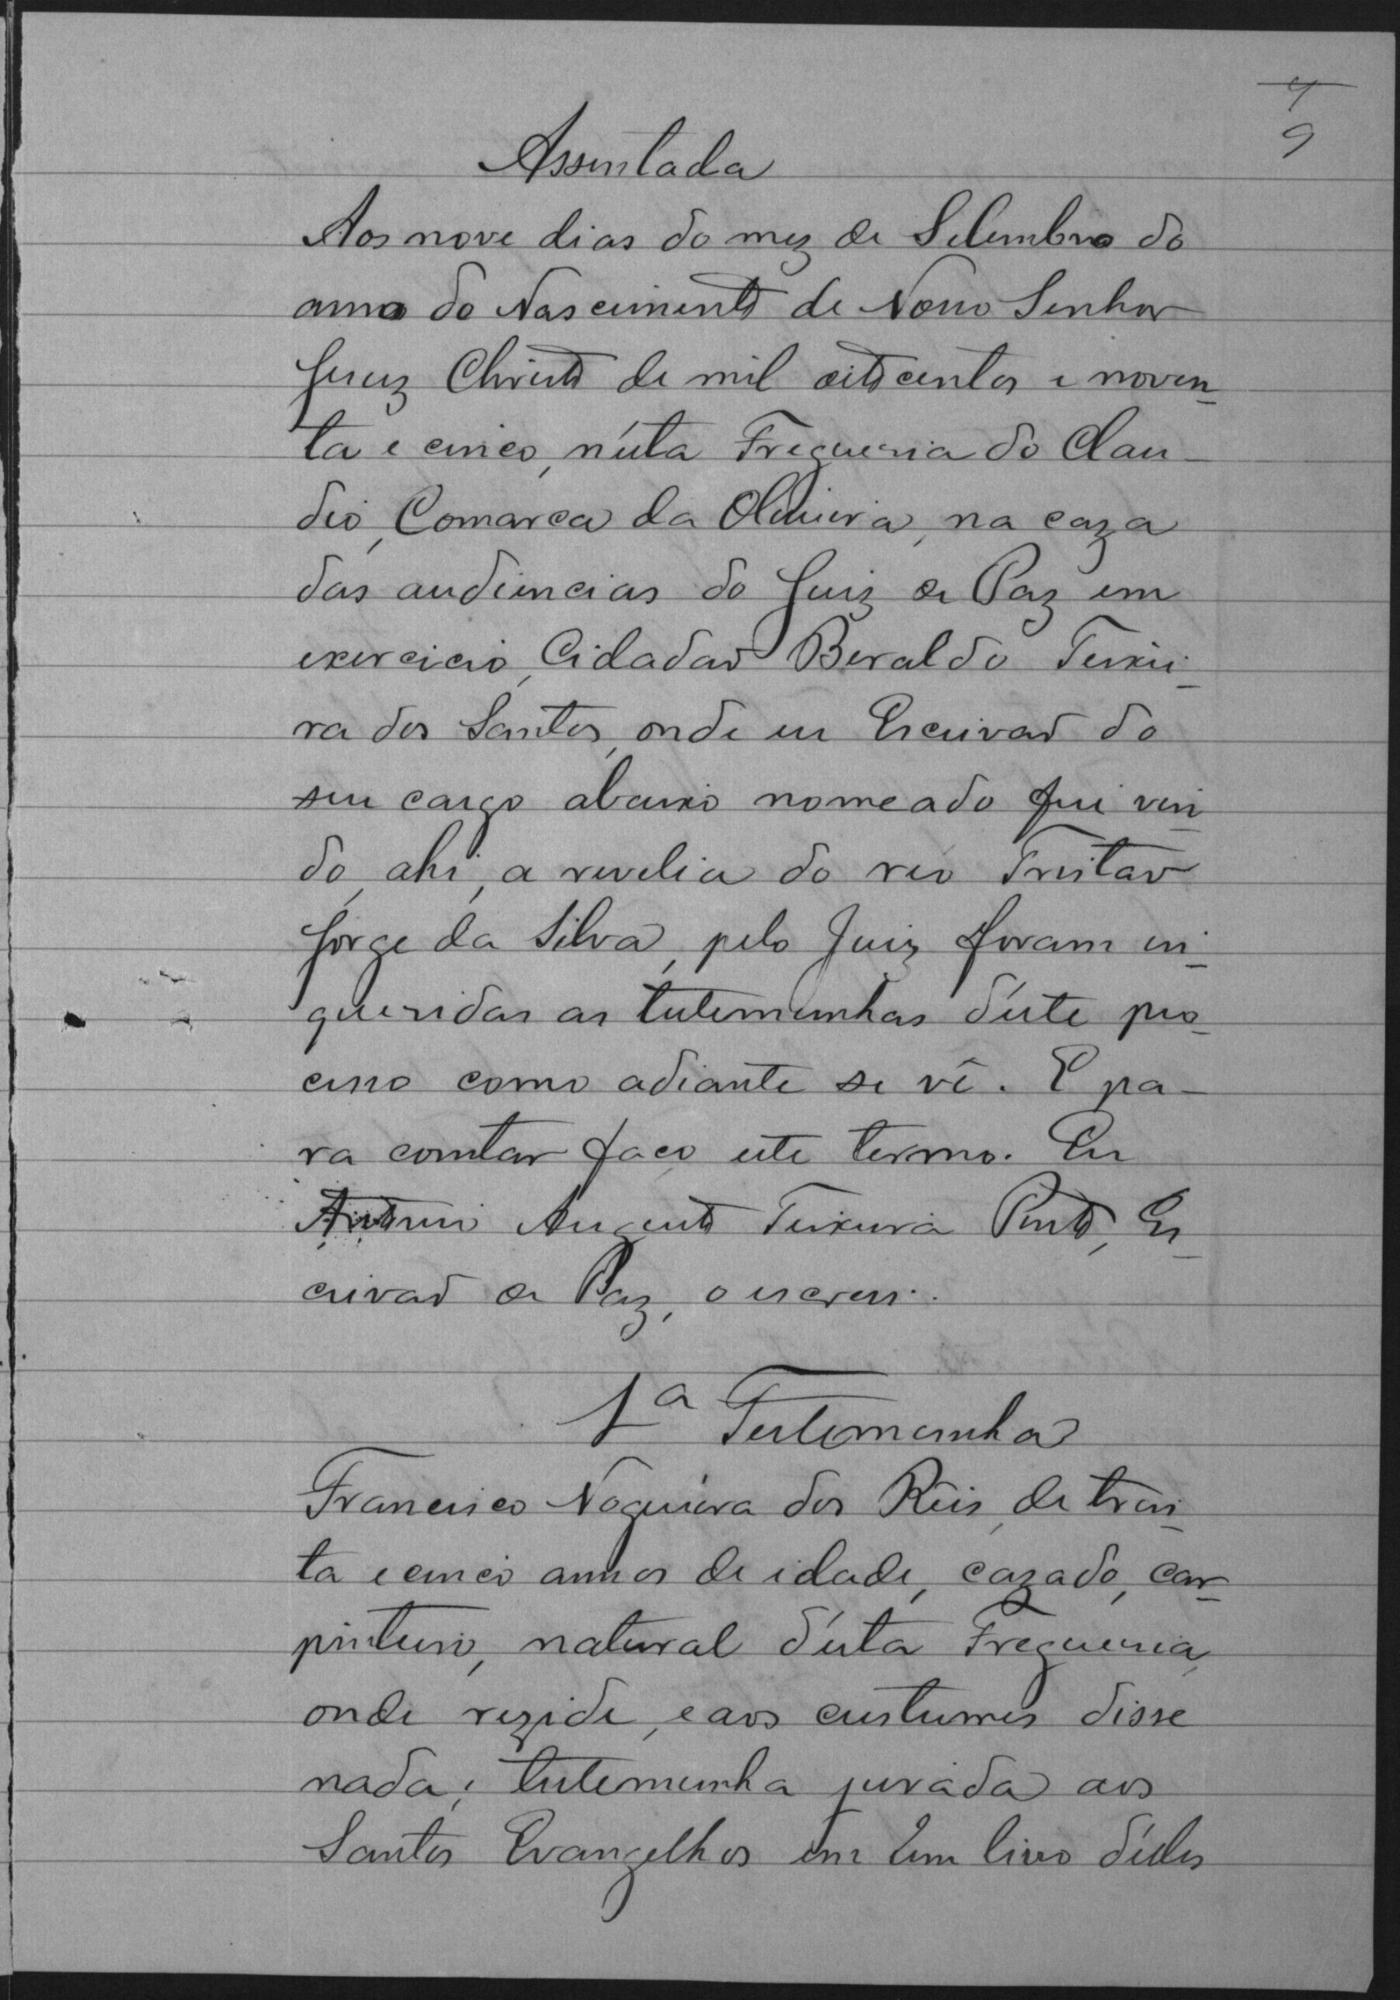 4
9
Assentada
Aos nove dias do mez de Setembro do
anno do Nascimento de Nosso Senhor
Jesuz Christo de mil oitocentos e noven-
ta e cinco, n'esta Freguesia do Clau-
dio, Comarca da Oliveira, na caza
das audiencias do Juiz de Paz em
exercicio, Cidadão Beraldo Teixei-
ra dos Santos, onde eu Escrivão do
seu cargo abaixo nomeado fui vin-
do, ahi, a revelia do reo Tristão
Jorge da Silva, pelo Juiz foram in-
queridas as testemunhas d'este pro-
cesso como adiante se vê. E pa-
ra constar faço este termo. Eu
Antonio Augusto Teixeira Pinto, Es-
crivão de Paz, o escrevi.
1a Testemunha
Francisco Nogueira dos Reis, de trin-
ta e cinco annos de idade, cazado, car-
pinteiro, natural d'esta Freguesia,
onde rezide, e aos custumes disse
nada; testemunha jurada aos
Santos Evangelhos em um livro d'elles